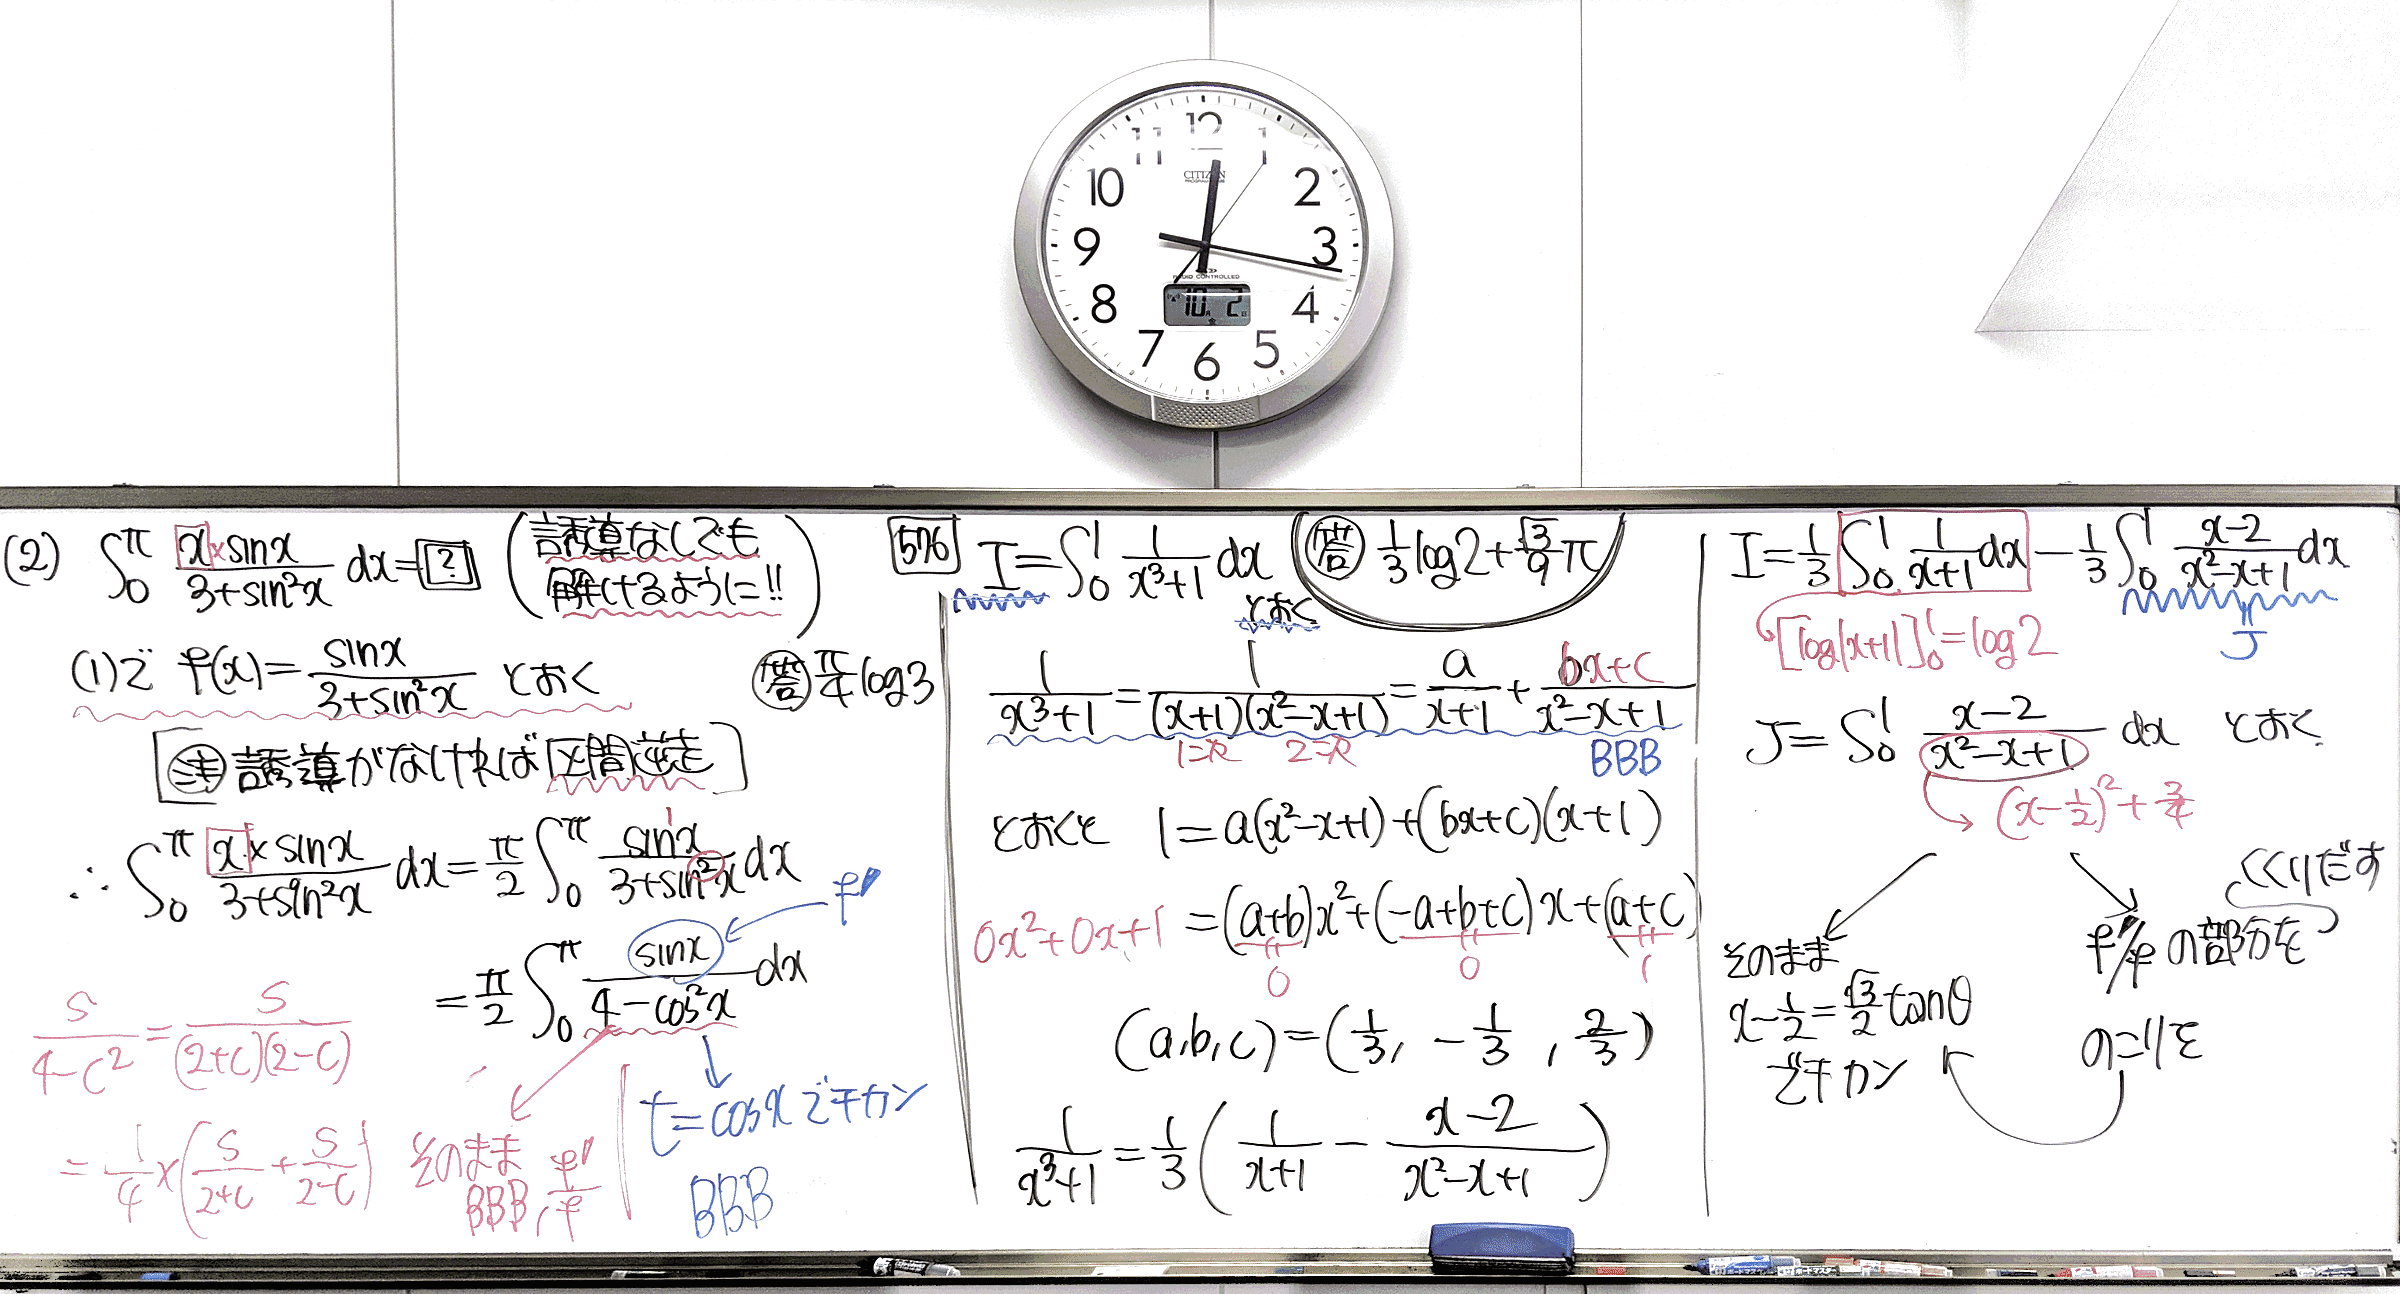 12
11 1
10 2
9 3
8 4
7 5
6
CITIZEN
RADIO CONTROLLED
10月 2日
金
(2) ∫₀^π x×sinx/(3+sin²x) dx = ?
(誘導なしでも
解けるように!!)
(1)で f(x)= sinx/(3+sin²x) とおく
答 π/4 log3
[注 誘導がなければ区間逆走]
∴ ∫₀^π x×sinx/(3+sin²x) dx = π/2 ∫₀^π sin¹x/(3+sin²x) dx
f'
= π/2 ∫₀^π sinx/(4-cos²x) dx
S/(4-C²) = S/((2+C)(2-C))
= 1/4 × (S/(2+C) + S/(2-C))
そのまま
BBB, f'/f
t=cosxでチカン
BBB
576 I=∫₀¹ 1/(x³+1) dx
とおく
答 1/3 log2 + √3/9 π
1/(x³+1) = 1/((x+1)(x²-x+1)) = a/(x+1) + (bx+c)/(x²-x+1)
1次 2次 BBB
とおくと 1=a(x²-x+1)+(bx+c)(x+1)
0x²+0x+1 =(a+b)x²+(-a+b+c)x+(a+c)
0 0 1
(a,b,c)=(1/3, -1/3, 2/3)
1/(x³+1) = 1/3 (1/(x+1) - (x-2)/(x²-x+1))
I= 1/3 ∫₀¹ 1/(x+1) dx - 1/3 ∫₀¹ (x-2)/(x²-x+1) dx
[log|x+1|]₀¹=log2
J
J=∫₀¹ (x-2)/(x²-x+1) dx とおく
(x-1/2)²+3/4
そのまま
x-1/2=√3/2 tanθ
でチカン
くくりだす
f'/f の部分を
のこりを